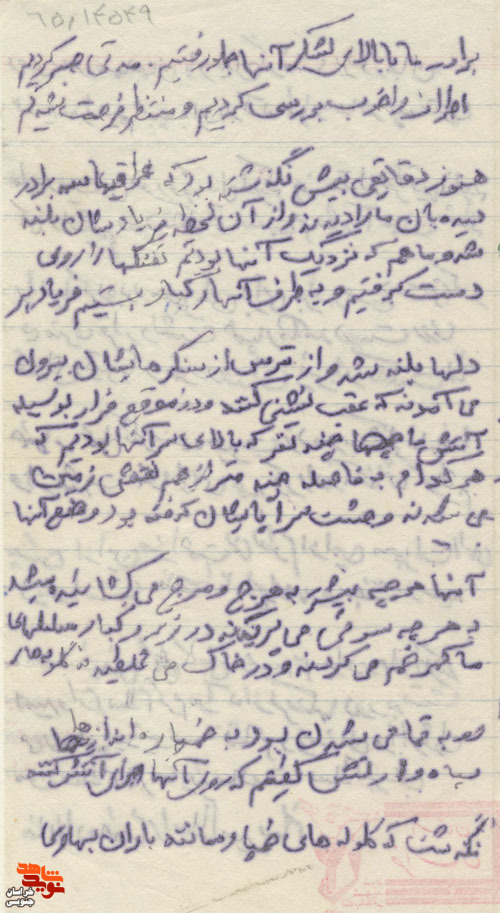 ۶۵/۱۴۵۴۹
برادر ما تا بالای لشکر آنها جلو رفتیم. مدتی صبر کردیم
اطراف را خوب بررسی کردیم و منتظر فرصت شدیم
هنوز دقایقی بیش نگذشته بود که عراقیها سه برادر
دیده‌بان ما را دیدند و از آن لحظه فریادشان بلند
شد و ما هم که نزدیک آنها بودیم تفنگها را روی
دست گرفتیم و به طرف آنها رگبار بستیم فریاد بر
دلها بلند شد و از ترس از سنگرهایشان بیرون
می آمدند که عقب نشینی کنند و در موقع فرار بوسیله
آتش ما چند نفر که بالای سر آنها بودیم که
هر کدام به فاصله چند متر از هم نقش زمین
می شدند وحشت سراپایشان گرفته بود وضع آنها
آنها هر چه بیشتر به هرج و مرج می کشانیده میشد
به هر چه سو می گریختند در زیر رگبار مسلسلهای
ما کمر خم می کردند و در خاک می غلطیدند
و به تمامی بدن بود به خمپاره اندازها
سپاه و ارتش گفتیم که روی آنها اجرای آتش کنند
نگذشت که گلوله های خمپاره مانند باران بهاری
شاهد
نوید
خراسان
جنوبی